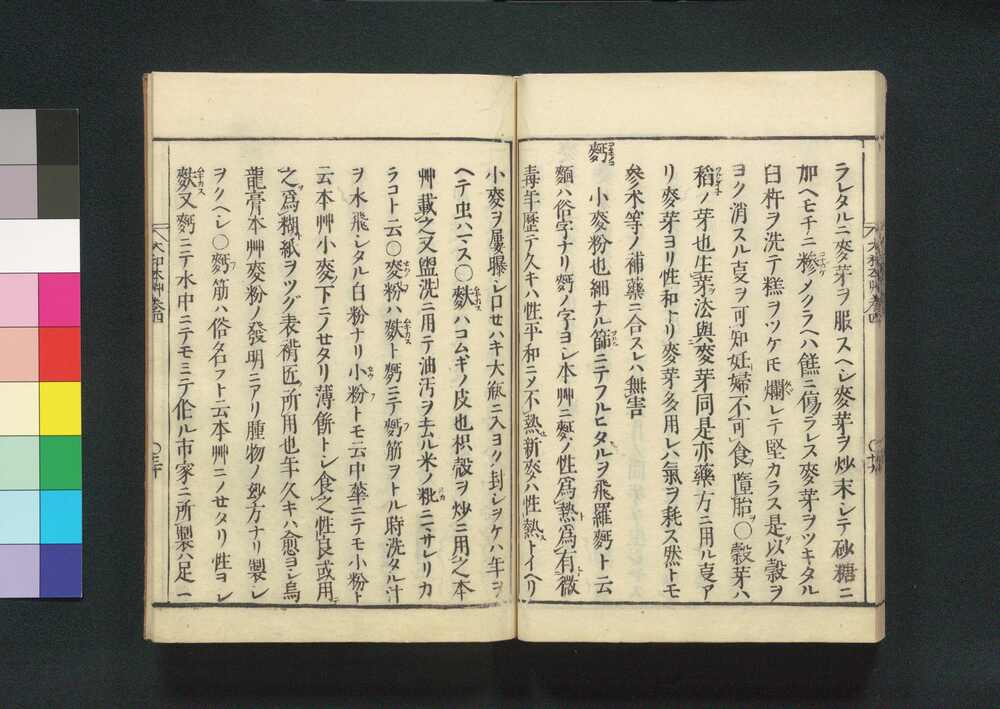 ラレタルニ麥芽ヲ服スヘシ麥芽ヲ炒末シテ砂糖ニ
加ヘモチニ糝メクラヘハ餻ニ傷ラレス麥芽ヲツキタル
臼杵ヲ洗テ糕ヲツケハ爛レテ堅カラス是以穀ヲ
ヨク消スル亊ヲ可知妊婦不可食墮胎〇穀芽ハ
稻ノ芽也生芽法與麥芽同是亦藥方ニ用ル亊ア
リ麥芽ヨリ性和ナリ麥芽多用レハ氣ヲ耗ス然トモ
參朮等ノ補藥ニ合スレハ無害
麪 小麥粉也細ナル篩ニテフルヒタルヲ飛羅麪ト云
麵ハ俗字ナリ麪ノ字ヨシ本艸ニ麪ノ性爲熱爲有微
毒年歴テ久キハ性平和ニメ不熱新麥ハ性熱トイヘリ
小麥ヲ屢曝シ口セハキ大瓶ニ入ヨク封シヲケハ年ヲ
ヘテ虫ハマス〇麩ハコムギノ皮也枳殻ヲ炒ニ用之本
艸載之又盥洗ニ用テ油汚ヲキル米ノ粃ニマサレリカ
ラコト云〇麥粉ハ麩ト麪ニテ麪筋ヲトル時洗タル汁
ヲ水飛シタル白粉ナリ小粉トモ云中華ニテモ小粉ト
云本艸小麥ノ下ニノセタリ薄餅トシ食之性良或用
之爲糊紙ヲツグ表褙匠所用也年久キハ愈ヨシ烏
龍膏本艸麥粉ノ發明ニアリ腫物ノ妙方ナリ製シ
ヲクヘシ〇麪筋ハ俗名フト云本艸ニノセタリ性ヨシ
麩又麪ニテ水中ニテモミテ作ル市家ニ所製ハ足ニ
大和本艸卷四
〇三十